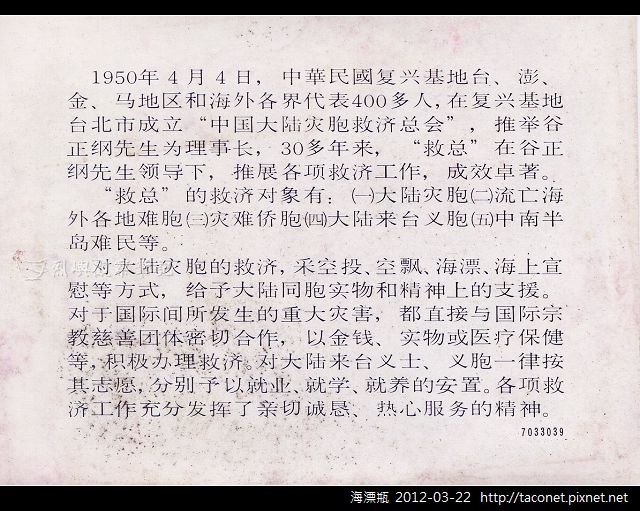 1950年4月4日，中華民國复兴基地台、澎、
金、马地区和海外各界代表400多人，在复兴基地
台北市成立“中国大陆灾胞救济总会”，推举谷
正纲先生为理事长，30多年来，“救总”在谷正
纲先生领导下，推展各项救济工作，成效卓著。
“救总”的救济对象有：㈠大陆灾胞㈡流亡海
外各地难胞㈢灾难侨胞㈣大陆来台义胞㈤中南半
岛难民等。
对大陆灾胞的救济，采空投、空飘、海漂、海上宣
慰等方式，给予大陆同胞实物和精神上的支援。
对于国际间所发生的重大灾害，都直接与国际宗
教慈善团体密切合作，以金钱、实物或医疗保健
等，积极办理救济。对大陆来台义士、义胞一律按
其志愿，分别予以就业、就学、就养的安置。各项救
济工作充分发挥了亲切诚恳、热心服务的精神。
7033039
海漂瓶 2012-03-22 http://taconet.pixnet.net